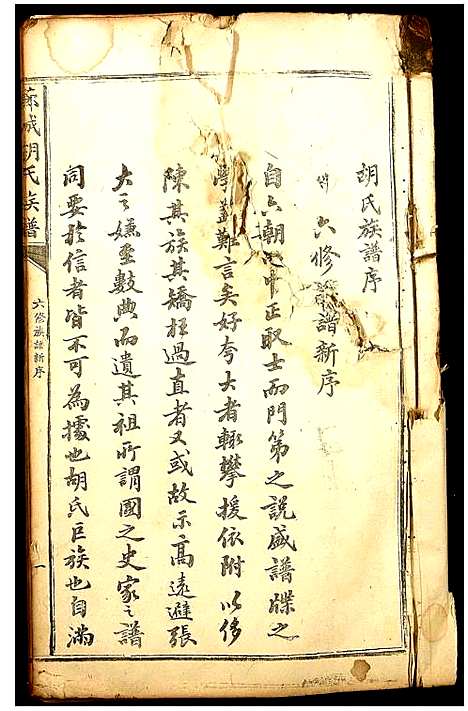 胡氏族譜序
六修 譜新序
自六朝 中正取士而門第之說盛譜牒之
學蓋難言矣好夸大者輒攀援依附以侈
陳其族其矯枉過直者又或故示高遠避張
大之嫌至數典而遺其祖所謂國之史家之譜
同要於信者皆不可為據也胡氏巨族也自滿
城胡氏族譜
六修族譜新序
一